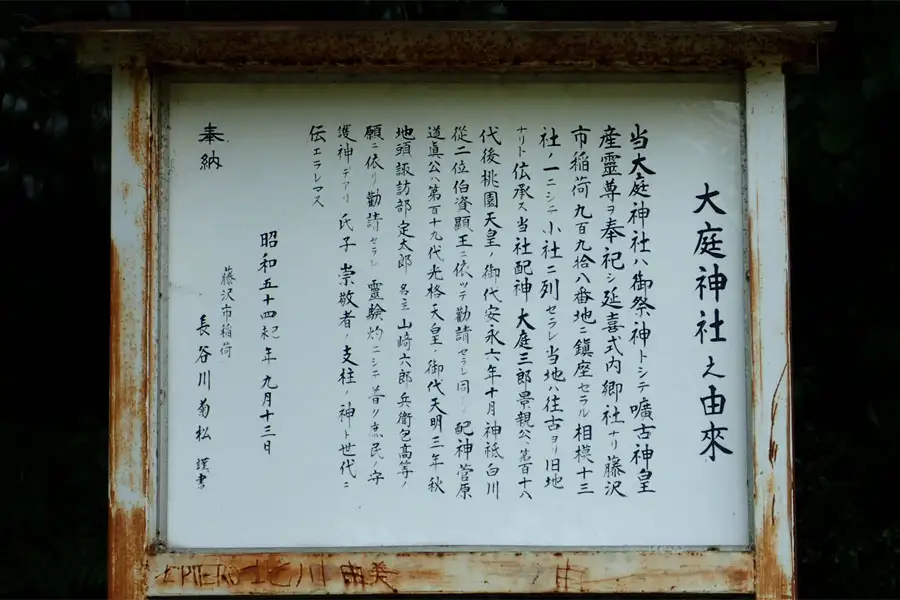 大庭神社之由來
当大庭神社ハ御祭神トシテ曠古神皇
産靈尊ヲ奉祀シ延喜式内郷社ナリ藤沢
市稲荷九百九拾八番地ニ鎮座セラル相模十三
社ノ一ニシテ小社ニ列セラレ当地ハ往古ヨリ旧地
ナリト伝承ス当社配神大庭三郎景親公ハ第百十八
代後桃園天皇ノ御代安永六年十月神祗白川
從二位伯資顯王ニ依ッテ勧請セラレ同ジク配神菅原
道眞公ハ第百十九代光格天皇ノ御代天明三年秋
地頭諏訪部定太郎名主山﨑六郎兵衛包高等ノ
願ニ依リ勧請セラレ靈験灼ニシテ昔ヨリ庶民ノ守
護神デアリ氏子崇敬者ノ支柱ノ神ト世代ニ
伝エラレマス
昭和五十四年九月十三日
藤沢市稲荷
長谷川菊松
奉納